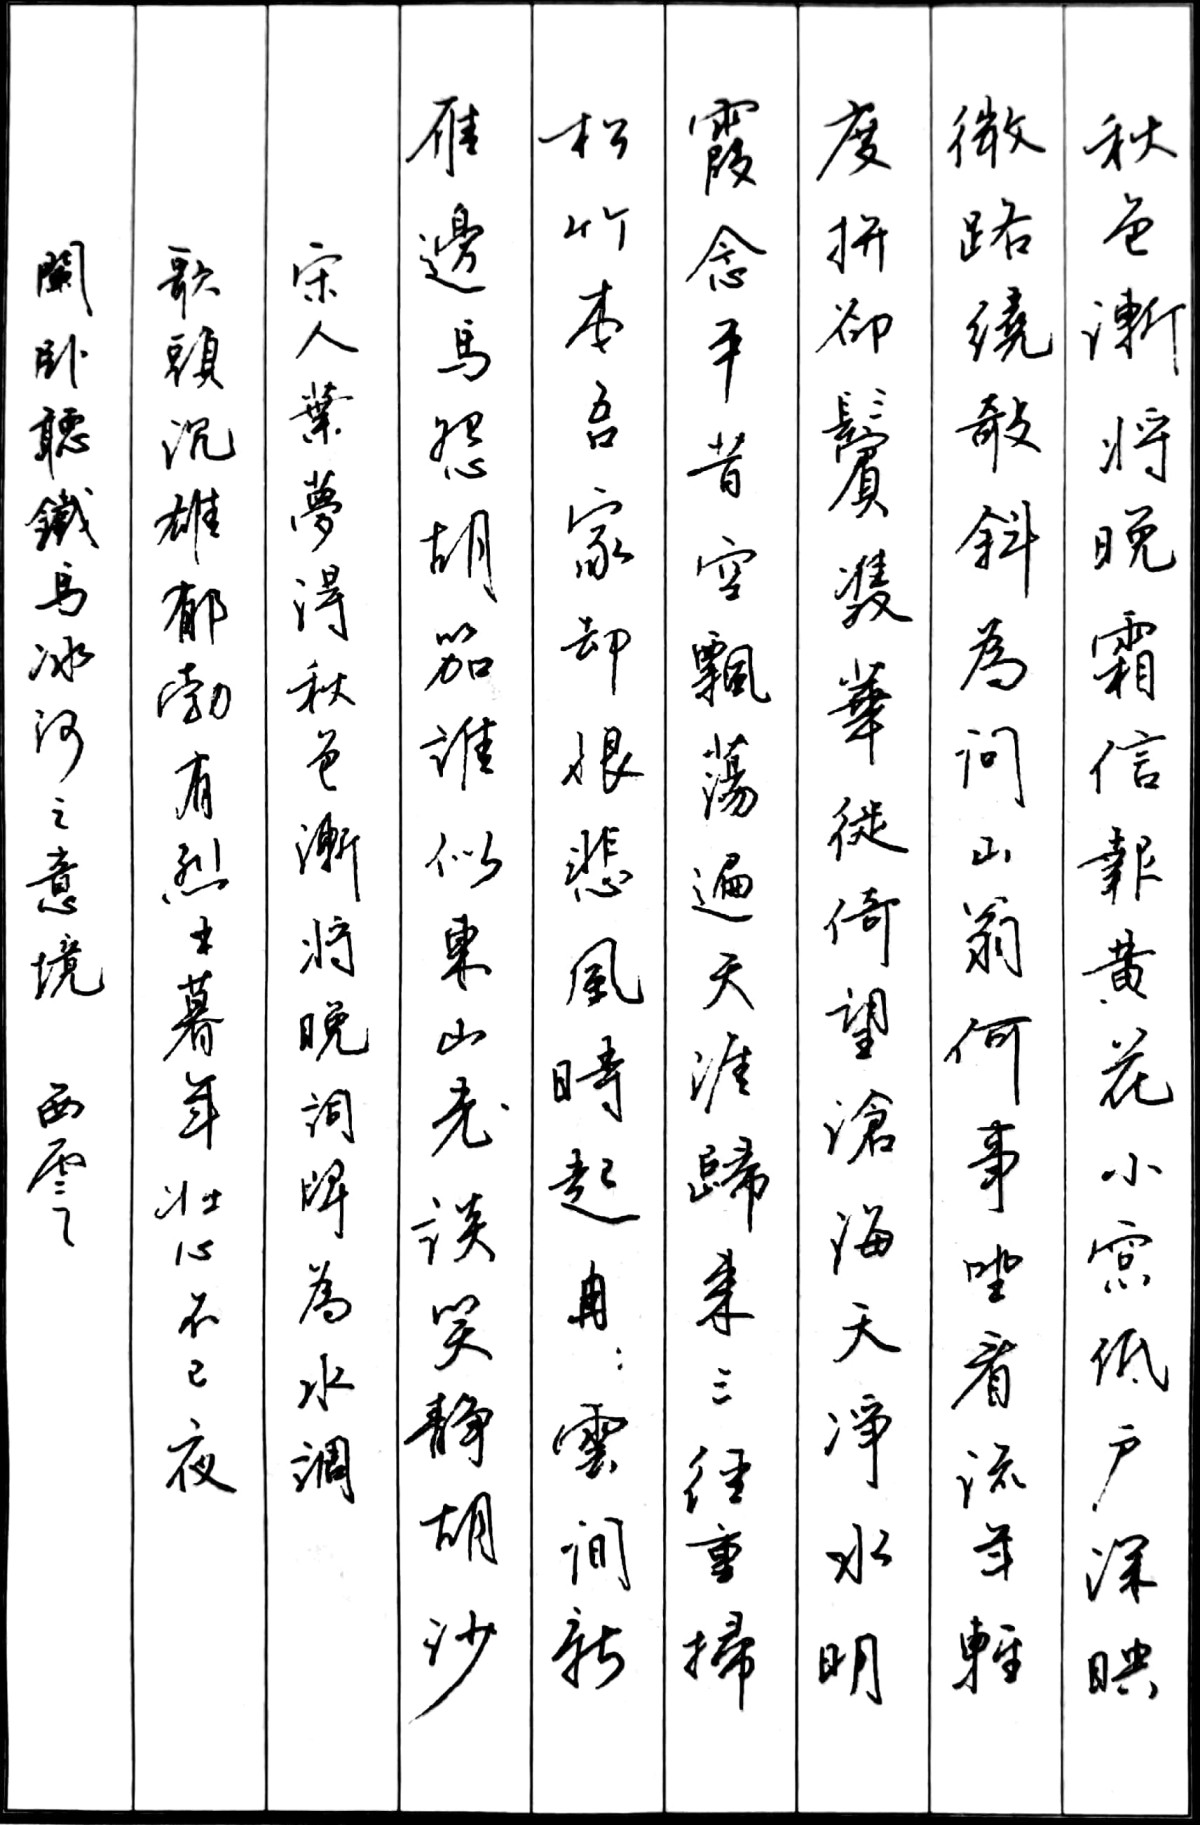 秋色漸将晚霜信報黄花小窓低户深映
微路繞敧斜為问山翁何事坐看流年輕
度拼卻鬢賓雙華徙倚望滄海天淨水明
霞念平昔空飄蕩遍天涯歸来三徑重掃
松竹本吾家却恨悲風時起冉:雲间新
雁邊馬怨胡笳誰似東山老談笑静胡沙
宋人葉夢得秋色漸将晚詞牌為水調
歌頭沉雄郁勃有烈士暮年壯心不已夜
闌卧聽鐵馬冰河之意境 西雲